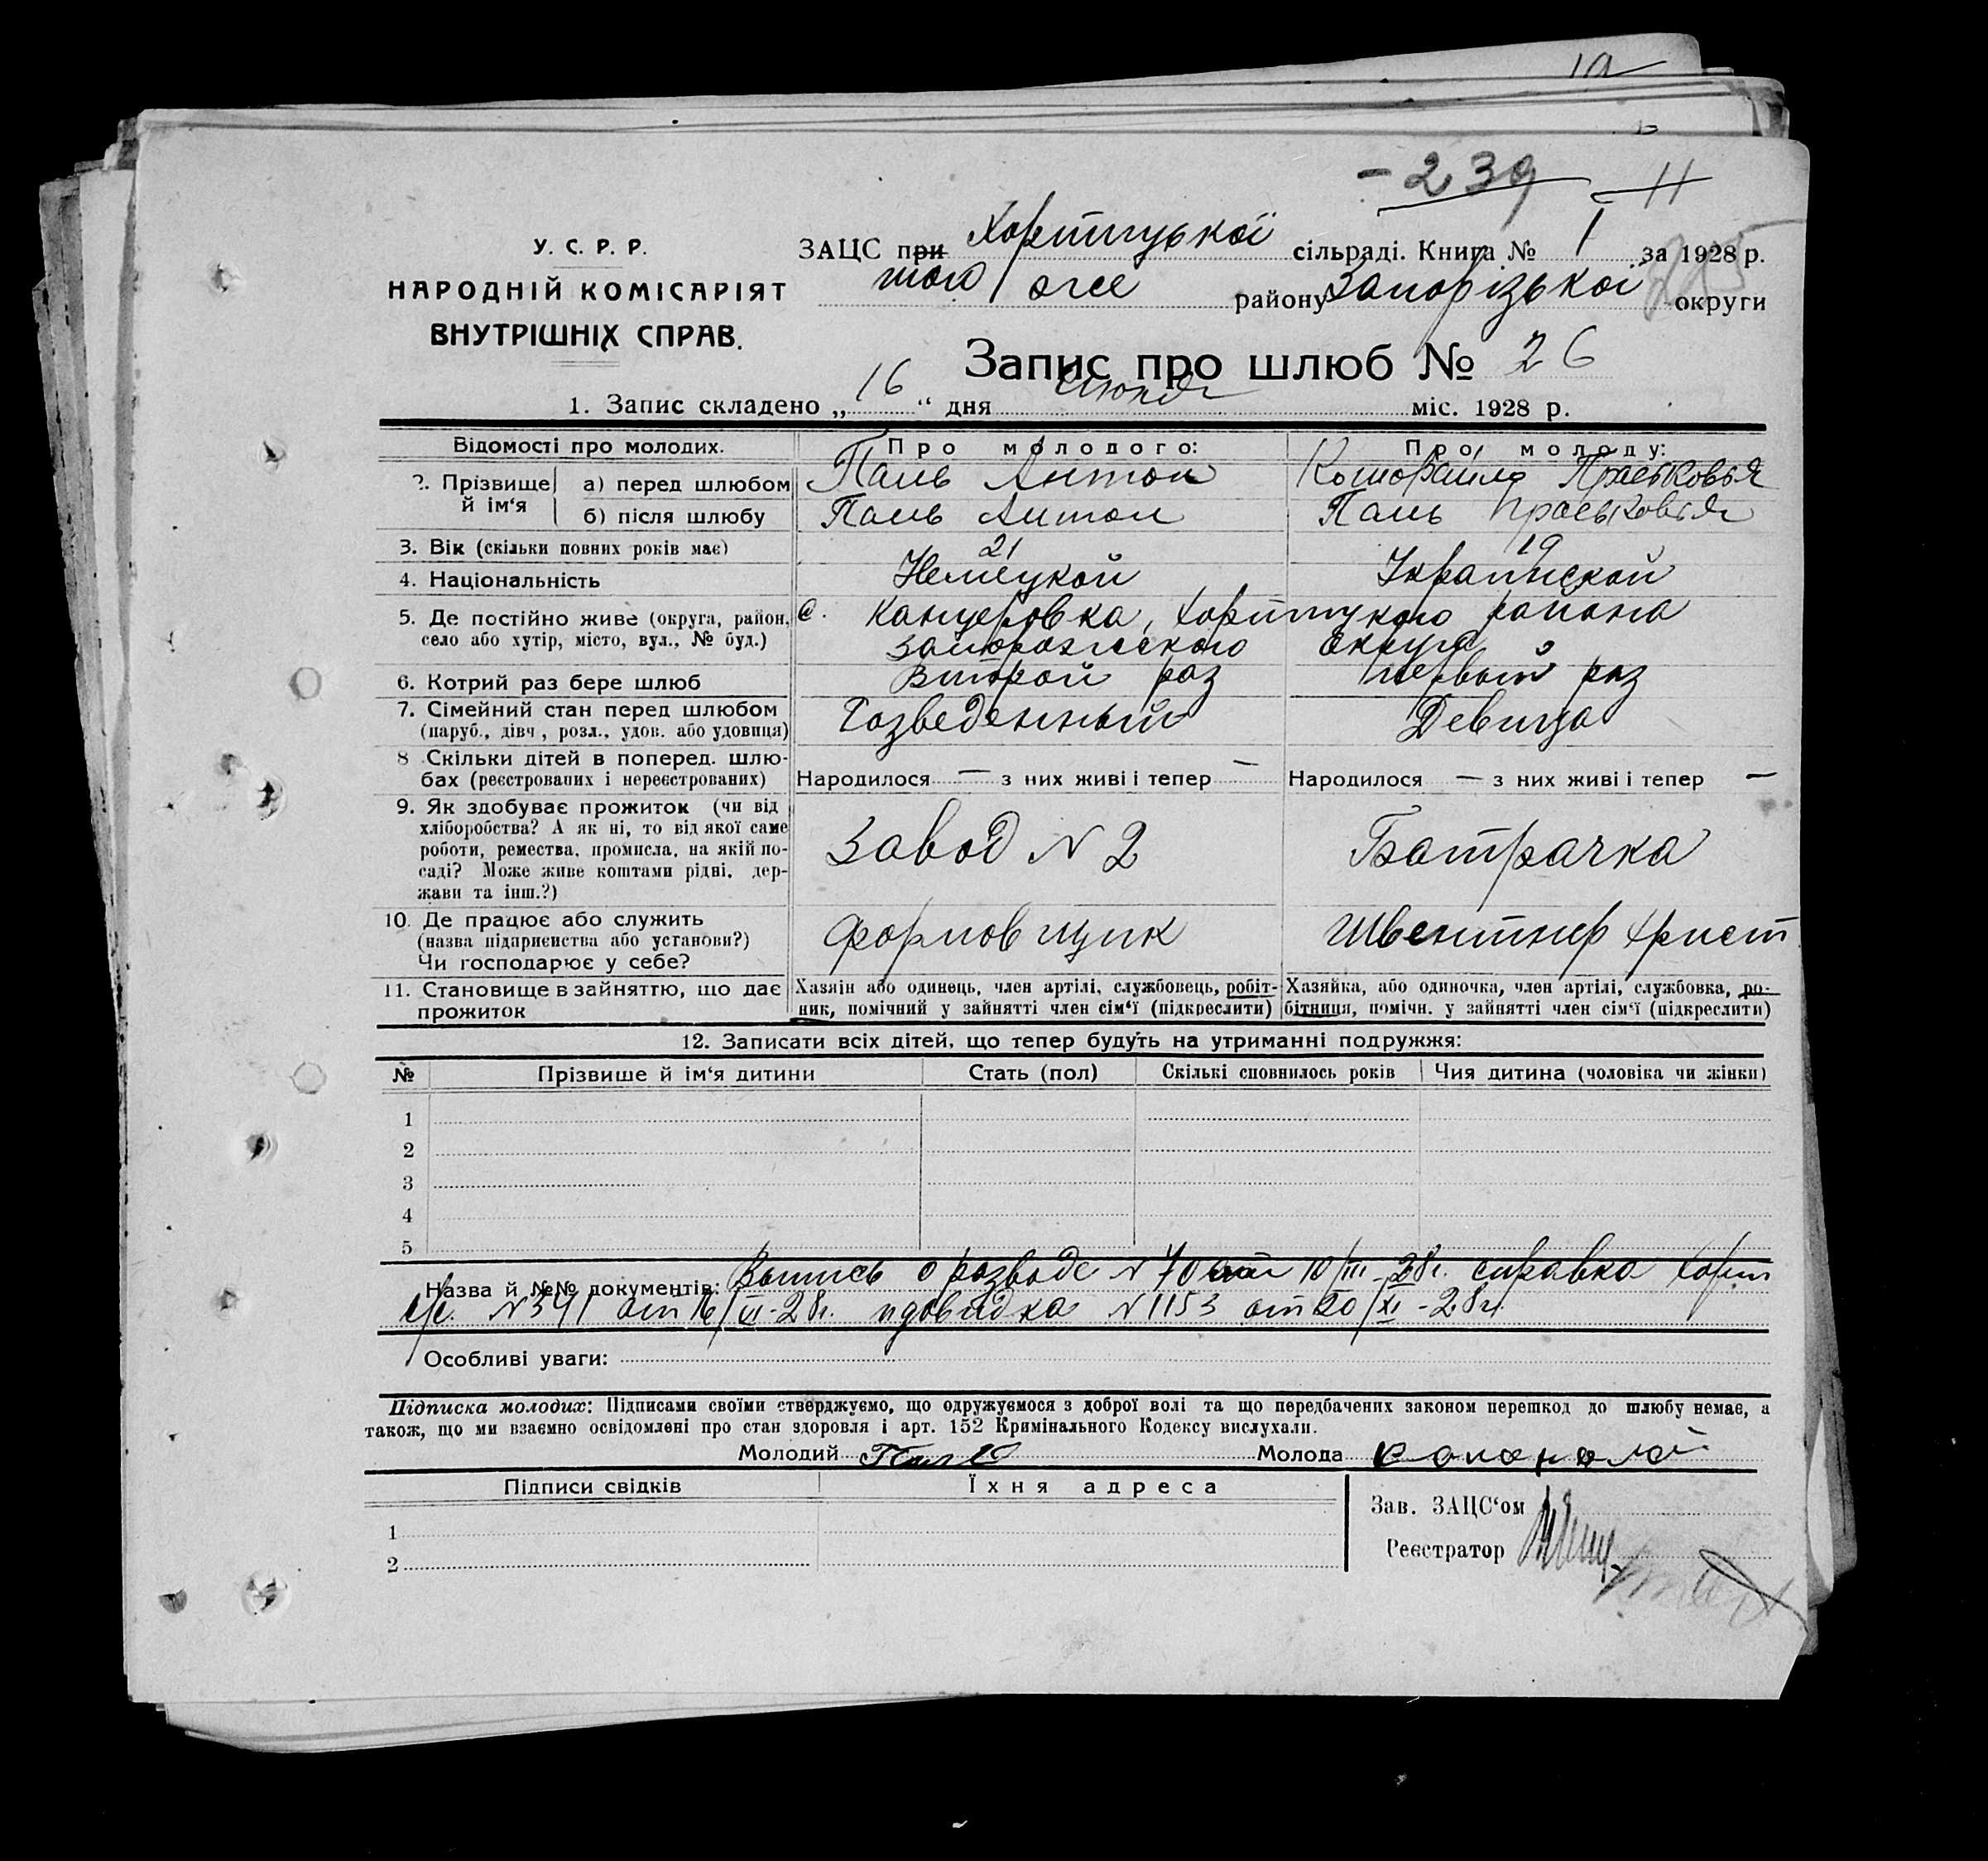 - 239 11
У. С. Р. Р.
НАРОДНІЙ КОМІСАРІЯТ
ВНУТРІШНІХ СПРАВ.
ЗАЦС при Хортицької сільраді. Книга № 1 за 1928 р.
того же району Запорізької округи
Запис про шлюб № 26
1. Запис складено „ 16 “ дня июня міс. 1928 р.
Відомості про молодих. Про молодого: Про молоду:
2. Прізвище й ім‘я а) перед шлюбом Паль Антон Прасковья
б) після шлюбу Паль Антон Паль Прасковья
3. Вік (скільки повних років має) 21 19
4. Національність Немецкой Украинской
5. Де постійно живе (округа, район, с. Канцеровка, Хортицкого района
село або хутір, місто, вул., № буд.) Запорожского округа
6. Котрий раз бере шлюб Второй раз первый раз
7. Сімейний стан перед шлюбом Розведенный Девица
(паруб., дівч., розл., удов. або удовиця)
8 Скільки дітей в поперед. шлю-
бах (реєстрованих і нереєстрованих) Народилося — з них живі і тепер — Народилося — з них живі і тепер —
9. Як здобуває прожиток (чи від
хліборобства? А як ні, то від якої саме
роботи, ремества, промисла, на якій по- Завод N 2 Батрачка
саді? Може живе коштами рідні, дер-
жави та інш.?)
10. Де працює або служить
(назва підприємства або установи?) формовщик Швентнер Христ
Чи господарює у себе?
11. Становище в зайняттю, що дає Хазяін або одинець, член артілі, службовець, робіт- Хазяйка, або одиночка, член артілі, службовка, ро-
прожиток ник, помічний у зайнятті член сім‘ї (підкреслити) бітниця, помічн. у зайнятті член сім‘ї (підкреслити)
12. Записати всіх дітей, що тепер будуть на утриманні подружжя:
№ Прізвище й ім‘я дитини Стать (пол) Скількі сповнилось років Чия дитина (чоловіка чи жінки)
1
2
3
4
5
Назва й №№ документів: Выпись о розводе N 70 от 10/III-28г. справка Хорт
с/с. N 341 от 16/VI-28г. и довидка N 1153 от 20/XI-28г.
Особливі уваги:
Підписка молодих: Підписами своїми стверджуємо, що одружуємося з доброї волі та що передбачених законом перешкод до шлюбу немає, а
також, що ми взаємно освідомлені про стан здоровля і арт. 152 Кримінального Кодексу вислухали.
Молодий Паль Молода
Підписи свідків Їхня адреса
Зав. ЗАЦС‘ом
1
Реєстратор
2